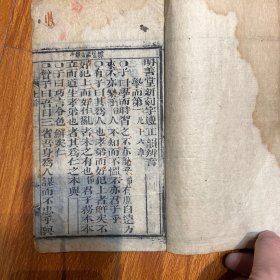 明善堂新刻字遵正韻辨音
學而第一 凡十六章
○子曰學而時習之不亦說乎有朋自遠方
來不亦樂乎人不知而不慍不亦君子乎
○有子曰其爲人也孝弟而好犯上者鮮矣不
好犯上而好作亂者未之有也君子務本本
立而道生孝弟也者其爲仁之本與
○子曰巧言令色鮮矣仁
○曾子曰吾日三省吾身爲人謀而不忠乎與